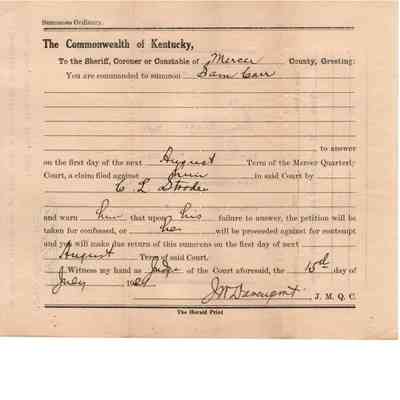 Summons Ordinary.
The Commonwealth of Kentucky,
To the Sheriff, Coroner or Constable of Mercer County, Greeting:
You are commanded to summon Sam Carr
to answer
on the first day of the next August Term of the Mercer Quarterly
Court, a claim filed against him in said Court by
C. L. Strode
and warn him that upon his failure to answer, the petition will be
taken for confessed, or he will be proceeded against for contempt
and you will make due return of this summons on the first day of next
August Term of said Court.
Witness my hand as Judge of the Court aforesaid, the 15d day of
July 19
J. W. Davenport, J. M. Q. C.
The Herald Print